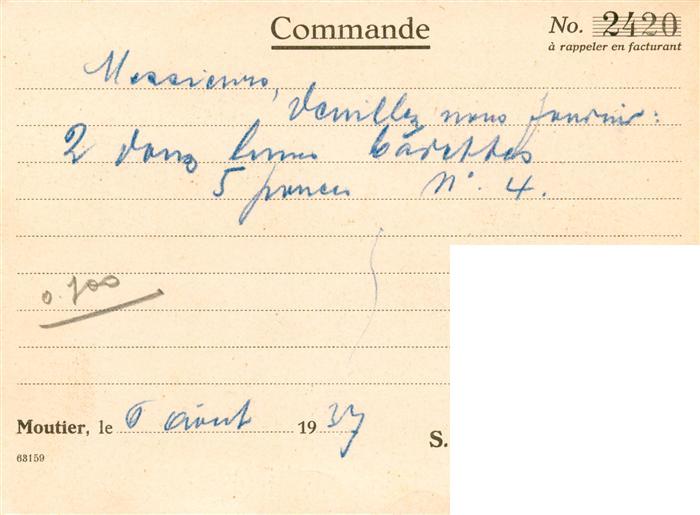 Commande
No. 2420
à rappeler en facturant
Messieurs,
Veuillez nous fournir:
2 douz limes barettes
5 pouces N°. 4.
0.700
Moutier, le 6 Août 1937
S.
63159